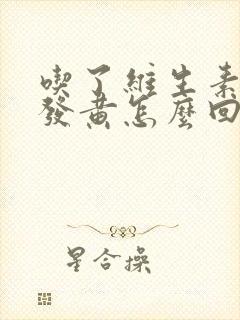 喫了維生素
發黃怎麼回
星合操